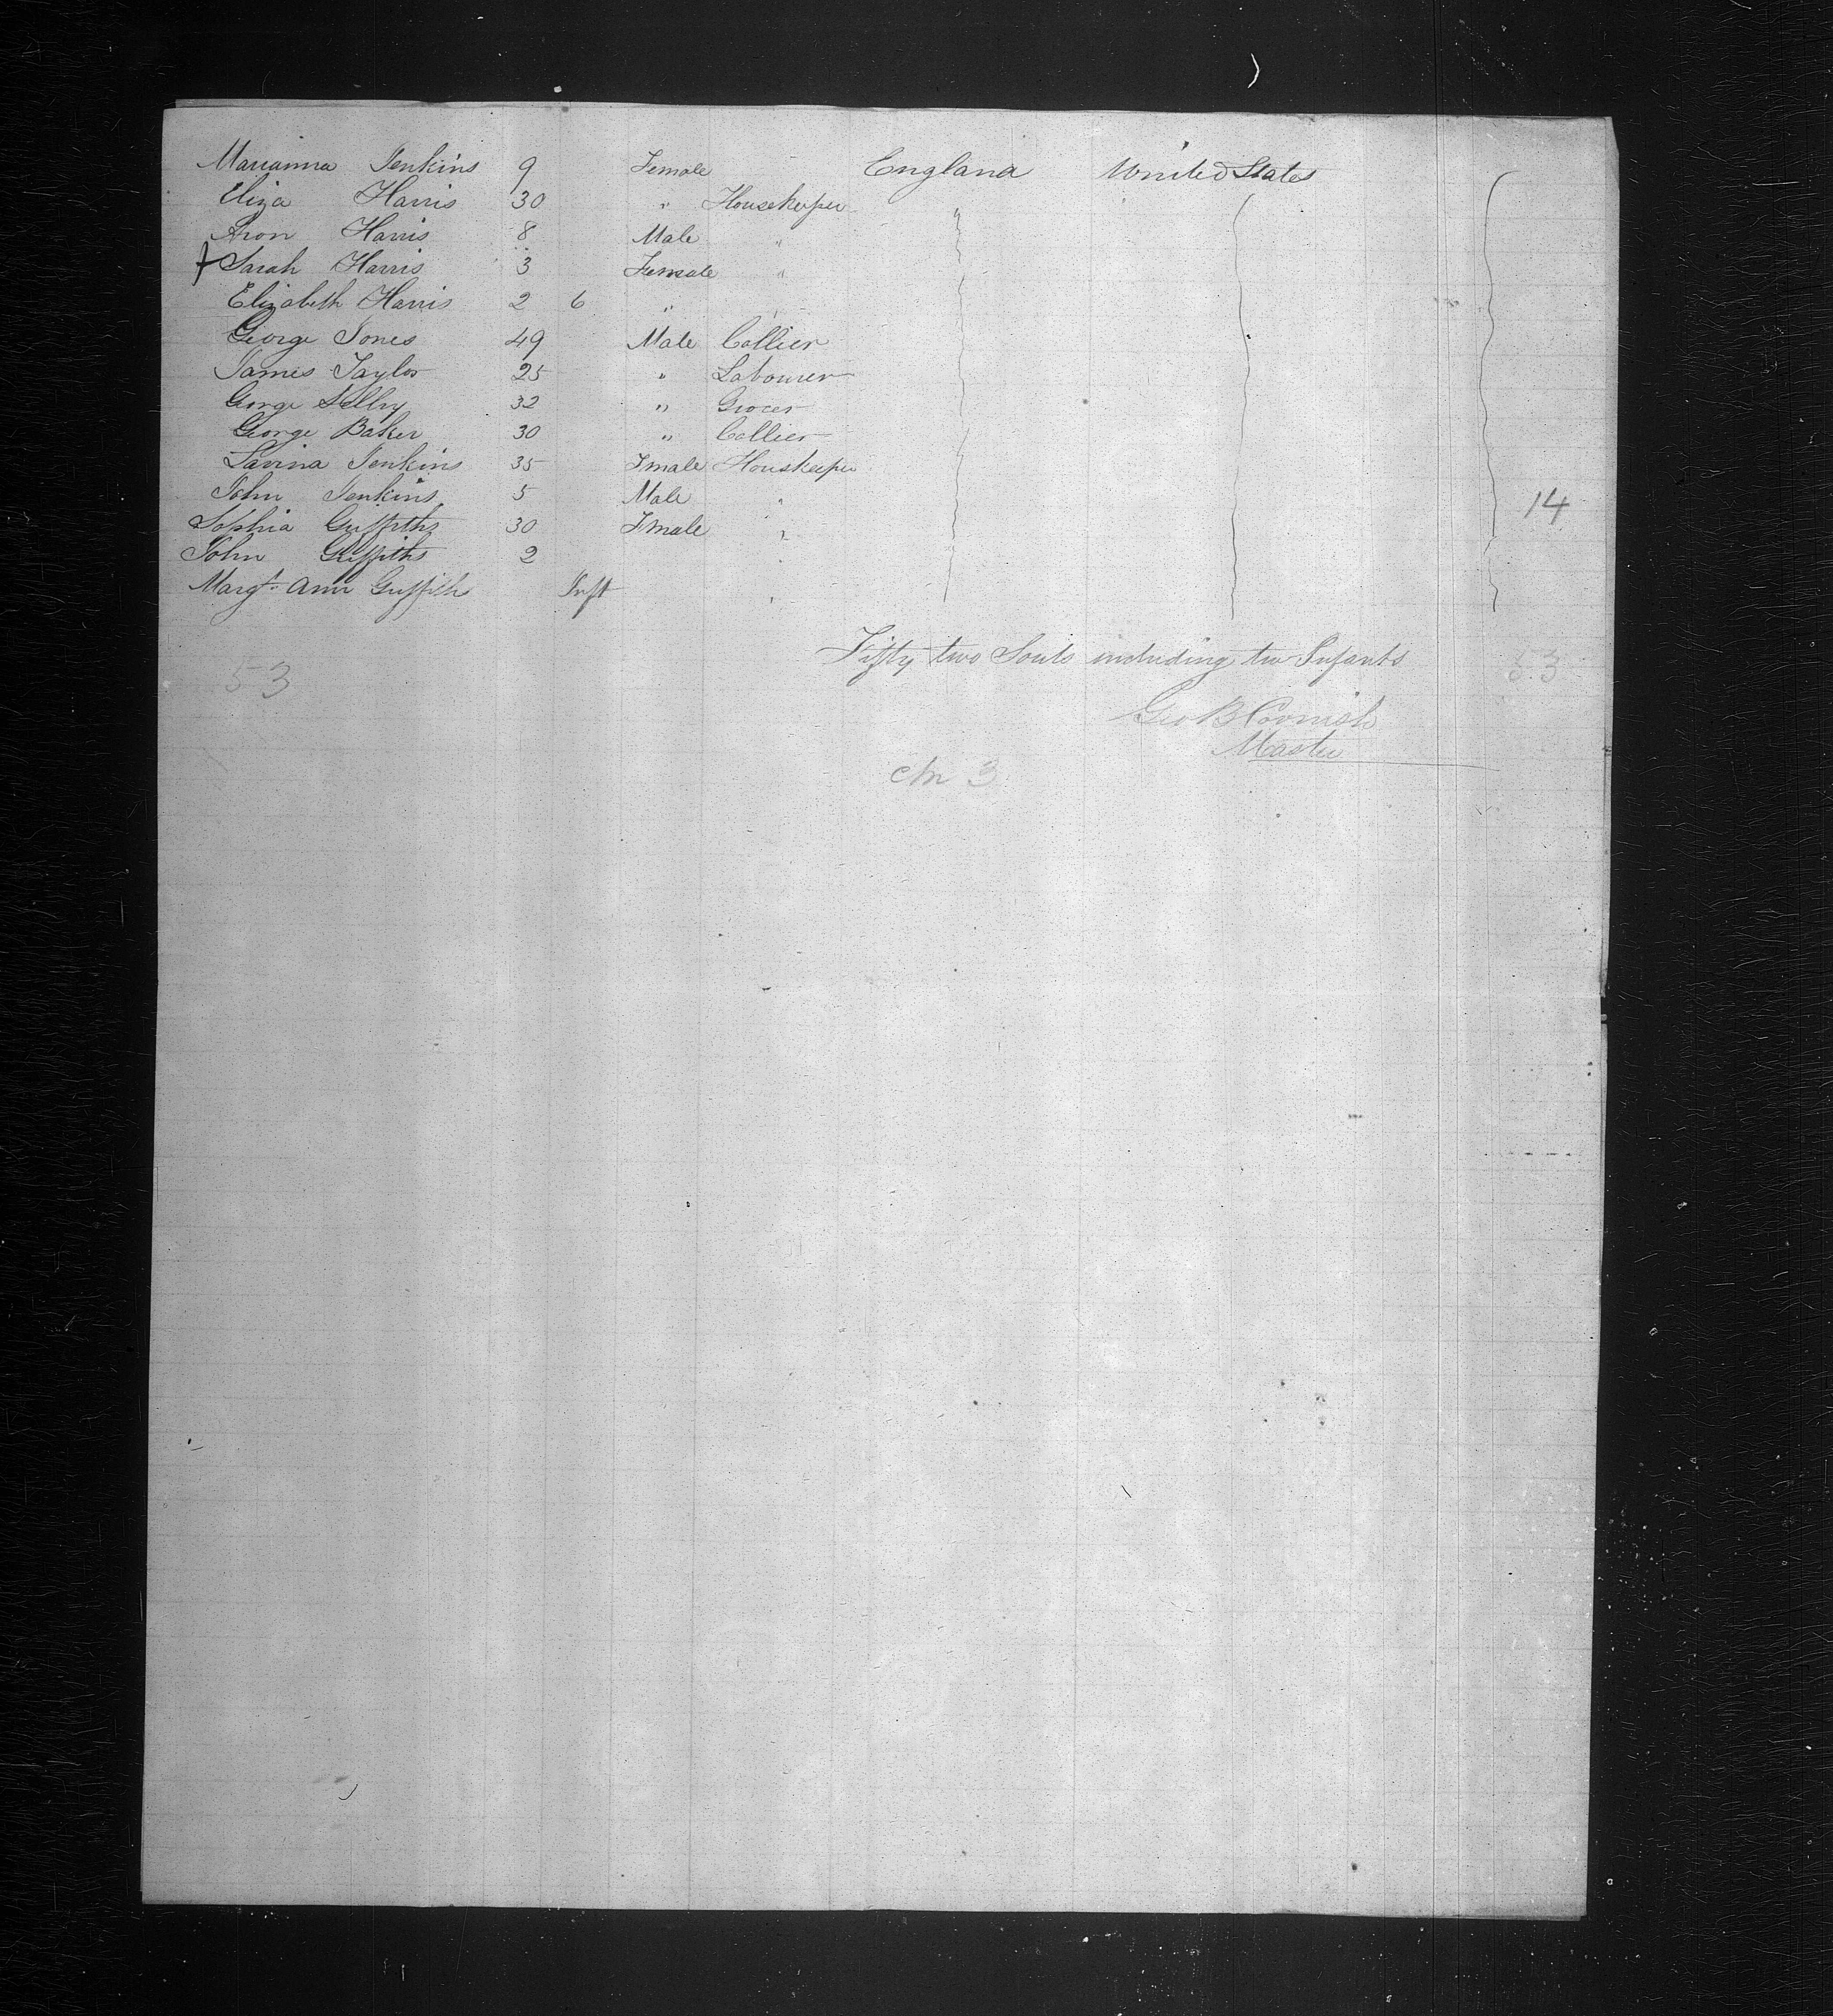 Marianna Jenkins 9 Female England United States
Eliza Harris 30 " Housekeeper
Aron Harris 8 Male "
Sarah Harris 3 Female "
Elizabeth Harris 2 6 " "
George Jones 49 Male Collier
James Taylor 25 " Labourer
George Selby 32 " Grocer
George Baker 30 " Collier
Lavina Jenkins 35 Fmale Houskeeper
John Jenkins 5 Male "
14
Sophia Griffiths 30 Fmale "
John Griffiths 2 "
Margt Ann Griffith Inft "
Fifty two Souls including two Infants
53 53
Geo B Cornish
Master
3